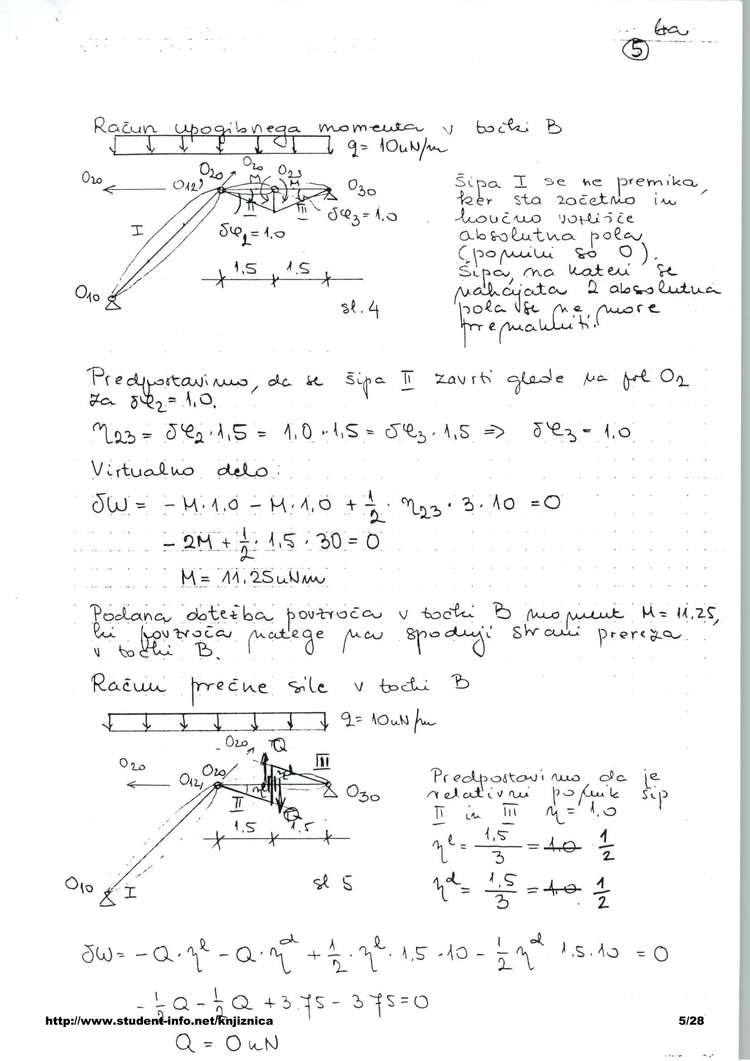 6a
5
Račun upogibnega momenta v točki B
q= 10kN/m
O20 O12, O20 O20 O23 O30
M M
I II III
δφ2=1,0 δφ3=1,0
O10
1,5 1.5
sl. 4
Šipa I se ne premika,
ker sta začetno in
končno vozlišče
absolutna pola
(pomiki so 0).
Šipa, na kateri se
nahajata 2 absolutna
pola se ne more
premakniti.
Predpostavimo, da se šipa II zavrti glede na pol O2
za δφ2 = 1,0.
η23 = δφ2·1,5 = 1,0·1,5 = δφ3·1,5 => δφ3 = 1,0
Virtualno delo:
δW = -M·1,0 - M·1,0 + 1/2 · η23 · 3 · 10 = 0
- 2M + 1/2 · 1,5 · 30 = 0
M = 11.25kNm
Podana obtežba povzroča v točki B moment M= 11.25,
ki povzroča natege na spodnji strani prereza
v točki B.
Račun prečne sile v točki B
q= 10kN/m
O20 O12, O20 O20 Q III
O30
II Q
1.5 1.5
O10 I
sl 5
Predpostavimo, da je
relativni pomik šip
II in III η = 1,0
ηl = 1,5/3 = 1.0 1/2
ηd = 1.5/3 = 1.0 1/2
δW= -Q·ηl - Q·ηd + 1/2·ηl·1,5·10 - 1/2 ηd 1.5·10 = 0
- 1/2Q - 1/2Q + 3.75 - 3.75 = 0
http://www.student-info.net/knjiznica 5/28
Q = 0kN